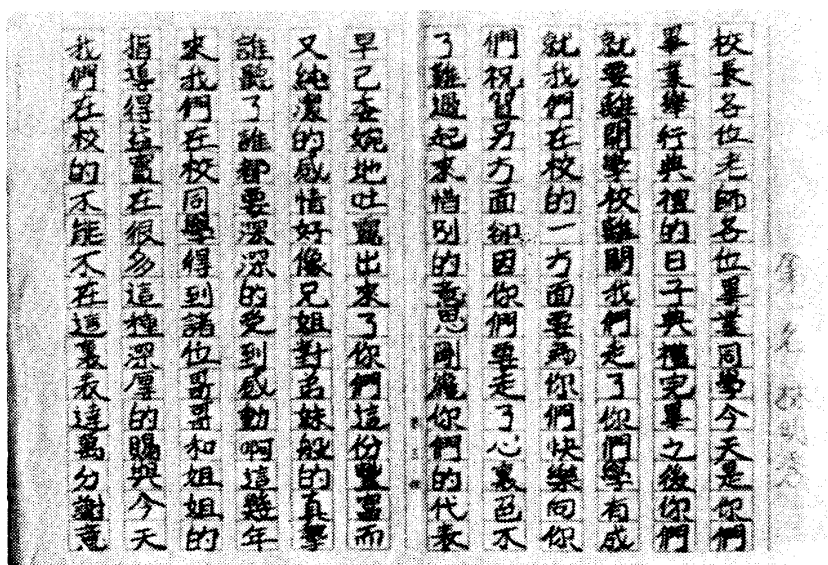 校長各位老師各位畢業同學今天是你們
畢業舉行典禮的日子典禮完畢之後你們
就要離開學校離開我們走了你們學有成
就我們在校的一方面要為你們快樂向你
們祝賀另方面卻因你們要走了心裏邑不
了難過起來惜別的意思剛纔你們的代表
早己委婉地吐露出來了你們這份豐富而
又純潔的感情好像兄姐對弟妹般的真摯
誰聽了誰都要深深的受到感動啊這幾年
來我們在校同學得到諸位哥哥和姐姐的
指導得益實在很多這種深厚的賜與今天
我們在校的不能不在這裏表達萬分謝意